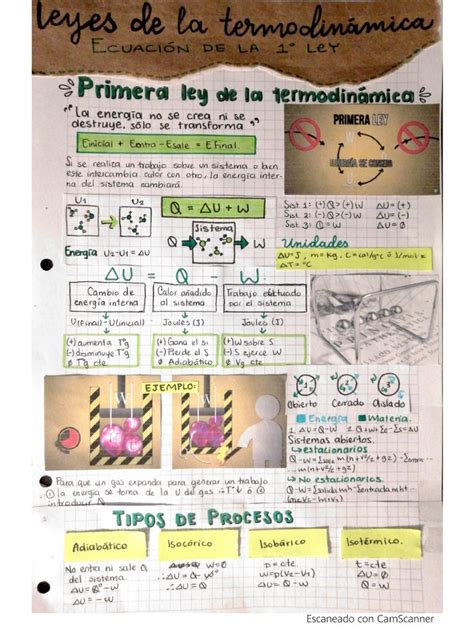 leyes de la termodinámica
ECUACIÓN DE LA 1° LEY
Primera ley de la termodinámica
"La energía no se crea ni se
destruye, sólo se transforma"
Einicial + Eentra - Esale = EFinal.
Si se realiza un trabajo sobre un sistema o bien
este intercambia calor con otro, la energía inter-
na del sistema cambiará.
PRIMERA LEY
ENERGÍA SE CONSERVA
U1
U2
Q = ΔU + W
Sistema
Q
W
Energía U2-U1 = ΔU
Sist. 1: (+) Q > (+) W ΔU = (+)
Sist. 2: (-) Q > (-) W ΔU = (-)
Sist. 3: Q = W ΔU = Ø
Unidades
ΔU = J, m = Kg, C = cal/g°C ó J/mol K
ΔT = °C
ΔU = Q - W
Cambio de
energía interna
Calor añadido
al sistema
Trabajo efectuado
por el sistema
U(Final) - U(inicial)
Joules (J)
Joules (J)
(+) aumenta T°g
(-) disminuye T°g
Ø T°g cte
(+) Gana el S
(-) Pierde el S
Ø Adiabático
(+) W sobre S
(-) S ejerce W
Ø Vg cte
EJEMPLO:
W
W
Abierto Cerrado Aislado
Energía Materia.
1. ΔU = Q-W 2. Q+W+Σe-Σs=ΔU
Sistemas abiertos.
→ estacionarios
→ No estacionarios.
Para que un gas expanda para generar un trabajo
la energía se toma de la U del gas
introducir
TIPOS DE PROCESOS
Adiabático
Isocórico
Isobárico
Isotérmico.
No entra ni sale Q
del sistema.
ΔU = Q - W
ΔU = - W
W=0
∴ΔU = Q - W
∴ΔU = Q
p = cte
W = p(V2-V1)
∴ΔU = Q - W
t = cte
ΔU = Ø
Q = W
Escaneado con CamScanner